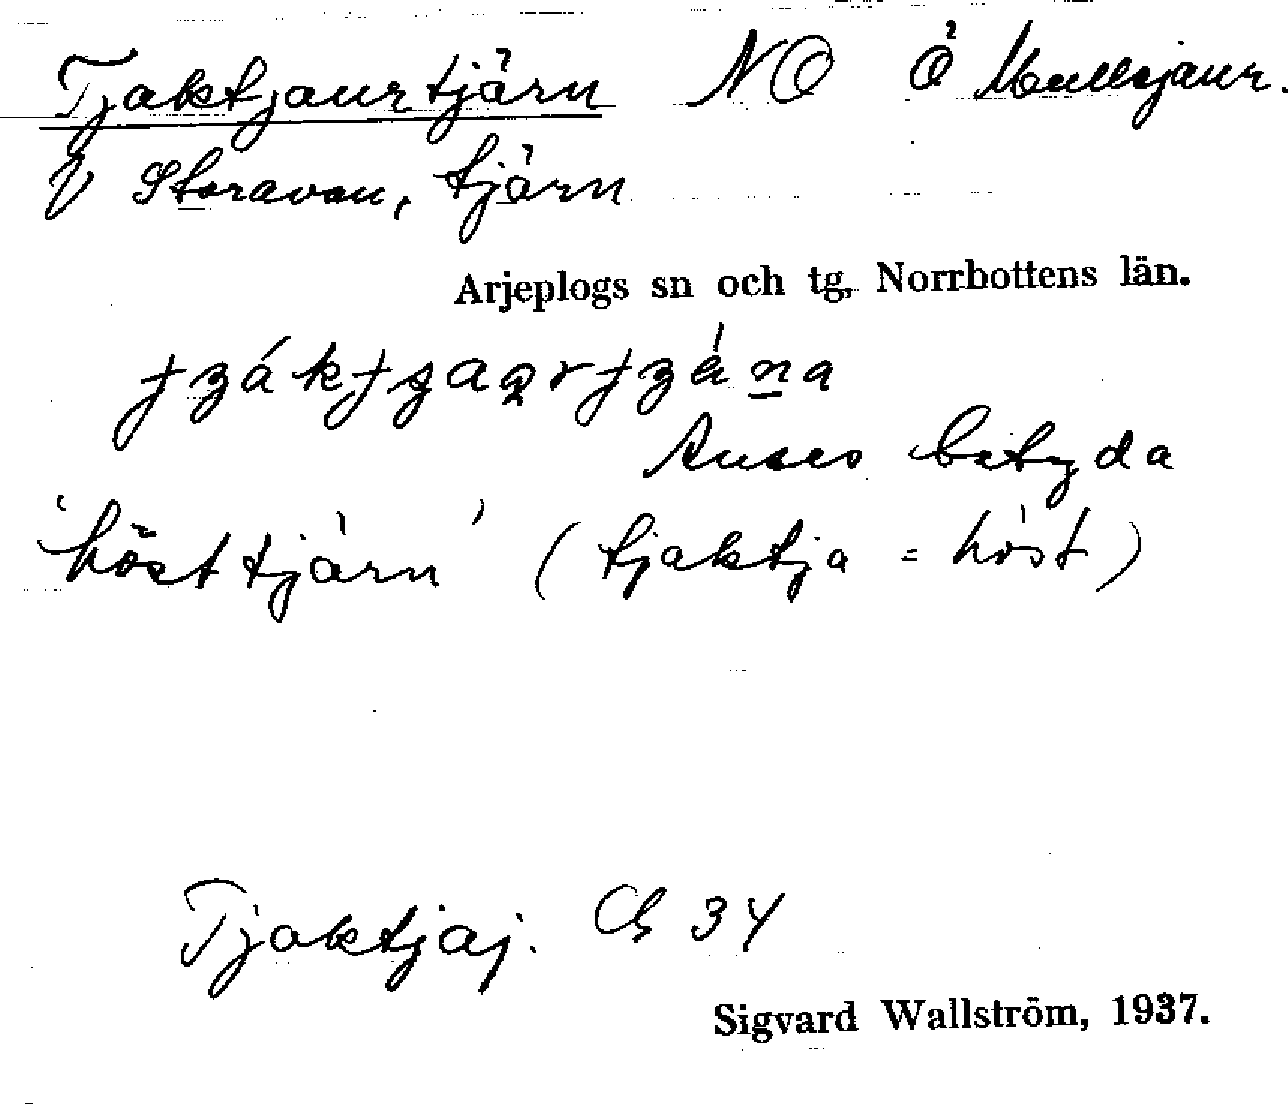 Tjaktjaurtjärn NO Ö Mullojaur.
V Storavan, tjärn
Arjeplogs sn och tg, Norrbottens län.
Anses betyda
'hösttjärn' (tjaktja = höst)
Tjaktjaj. Ch 34
Sigvard Wallström, 1937.